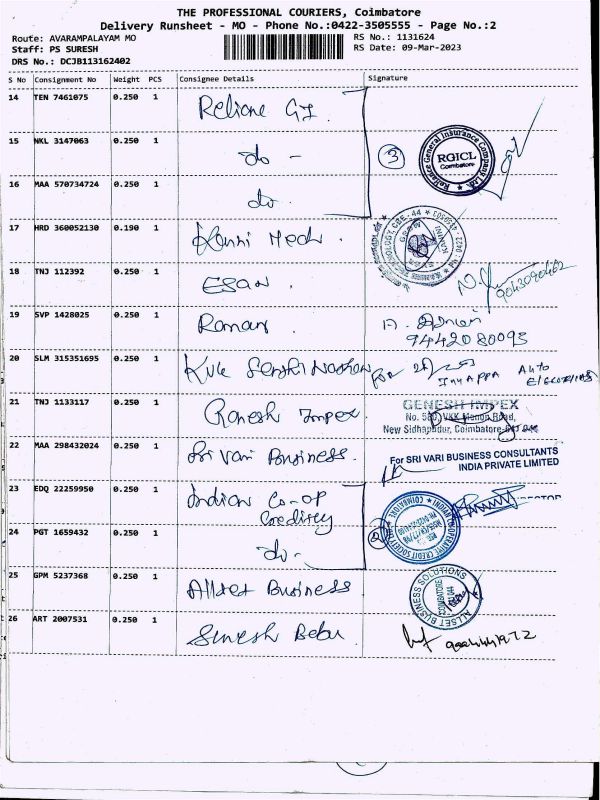 THE PROFESSIONAL COURIERS, Coimbatore
Delivery Runsheet - MO - Phone No.:0422-3505555 - Page No.:2
Route: AVARAMPALAYAM MO
RS No.: 1131624
Staff: PS SURESH
RS Date: 09-Mar-2023
DRS No.: DCJB113162402
S No Consignment No Weight PCS Consignee Details Signature
14 TEN 7461075 0.250 1 Reliance GI
15 NKL 3147063 0.250 1 do -
3 RGICL Coimbatore
Reliance General Insurance Company Ltd.
16 MAA 570734724 0.250 1 do.
17 HRD 360052130 0.190 1 Kanni Mech.
18 TNJ 112392 0.250 1 ESAN.
9043090462
19 SVP 1428025 0.250 1 Raman.
9442080093
20 SLM 315351695 0.250 1 KVK
for Auto
21 TNJ 1133117 0.250 1 Ganesh Impex
GENESH IMPEX
No. 580, VKK Menon Road,
New Sidhapudur, Coimbatore
22 MAA 298432024 0.250 1 Sri Vari Business.
For SRI VARI BUSINESS CONSULTANTS
INDIA PRIVATE LIMITED
23 EDQ 22259950 0.250 1 Indian Co-op
DIRECTOR
24 PGT 1659432 0.250 1 do -
2
25 GPM 5237368 0.250 1 Allset Business
ALLSET BUSINESS SOLUTIONS
COIMBATORE
26 ART 2007531 0.250 1 Suresh Babu